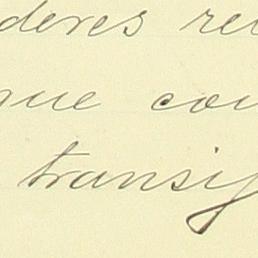 deres re
que con
transig